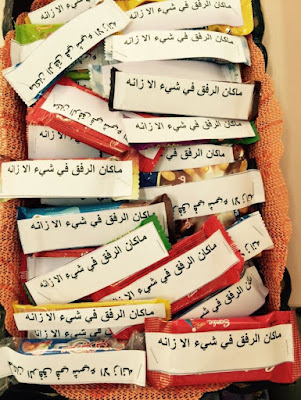 مكان الرفق في شيء الا زانه
ماكان الرفق في شيء الا زانه
ماكان الرفق في شيء الا زانه
ماكان الرفق في شيء الا زانه
ماكان الرفق في شيء الا زانه
ماكان الرفق في شيء الا زانه
ماكان الرفق في شيء الا زانه
ماكان الرفق في شيء الا زانه
ماكان الرفق في شيء الا زانه
ماكان الرفق في شيء الا زانه
ماكان الرفق في شيء الا زانه
ماكان الرفق في شيء الا زانه
ماكان الرفق في شيء الا زانه
ماكان الرفق في شيء الا زانه